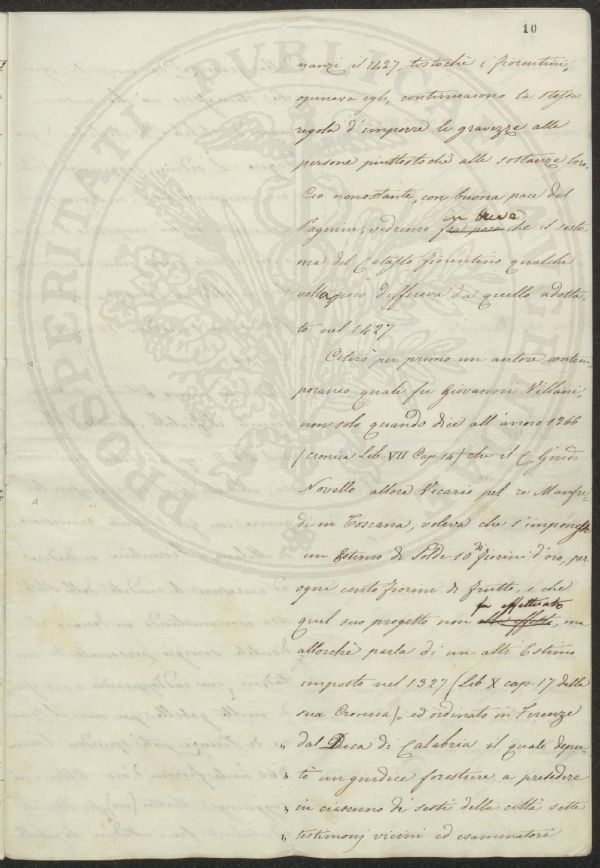 10
nanzi il 1427, tostochè i fiorentini,
opinava egli, continuarono la stessa
regola d'imporre le gravezze alle
persone piuttostochè alle sostanze loro.
Ciò nonostante, con buona pace del
in breve
Pagnini, vedremo fra poco che il siste-
ma del Catasto fiorentino qualche
volta poco differiva da quello adotta-
to nel 1427.
Citerò per primo un autore contem-
poraneo quale fu Giovanni Villani,
non solo quando dice all'anno 1266
(cronica Lib. VII Cap. 14) che il C. Guido
Novello allora Vicario pel re Manfre-
di in Toscana, voleva che s'imponesse
un Estimo di Soldi 10 di fiorini d'oro, per
ogni cento fiorini di frutto, e che
fu effettuato
quel suo progetto non, ma
allorchè parla di un altr'Estimo
imposto nel 1327 (Lib. X cap. 17 della
sua Cronica), ed ordinato in Firenze
" dal Duca di Calabria il quale depu-
" tò un giudice forestiere a presedere
" in ciascuno di sesti della città sette
" testimonj vicini ed esaminatori
PROSPERITATI PVBLICAE AVGENDAE